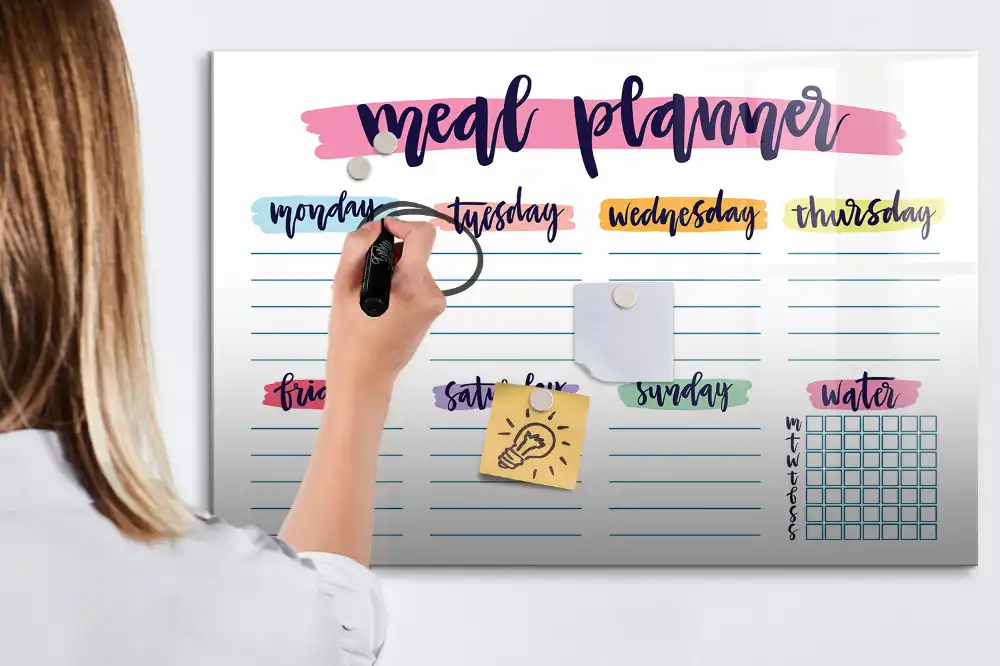 meal planner
monday tuesday wednesday thursday
fri saturday sunday water
m
t
w
t
f
s
s